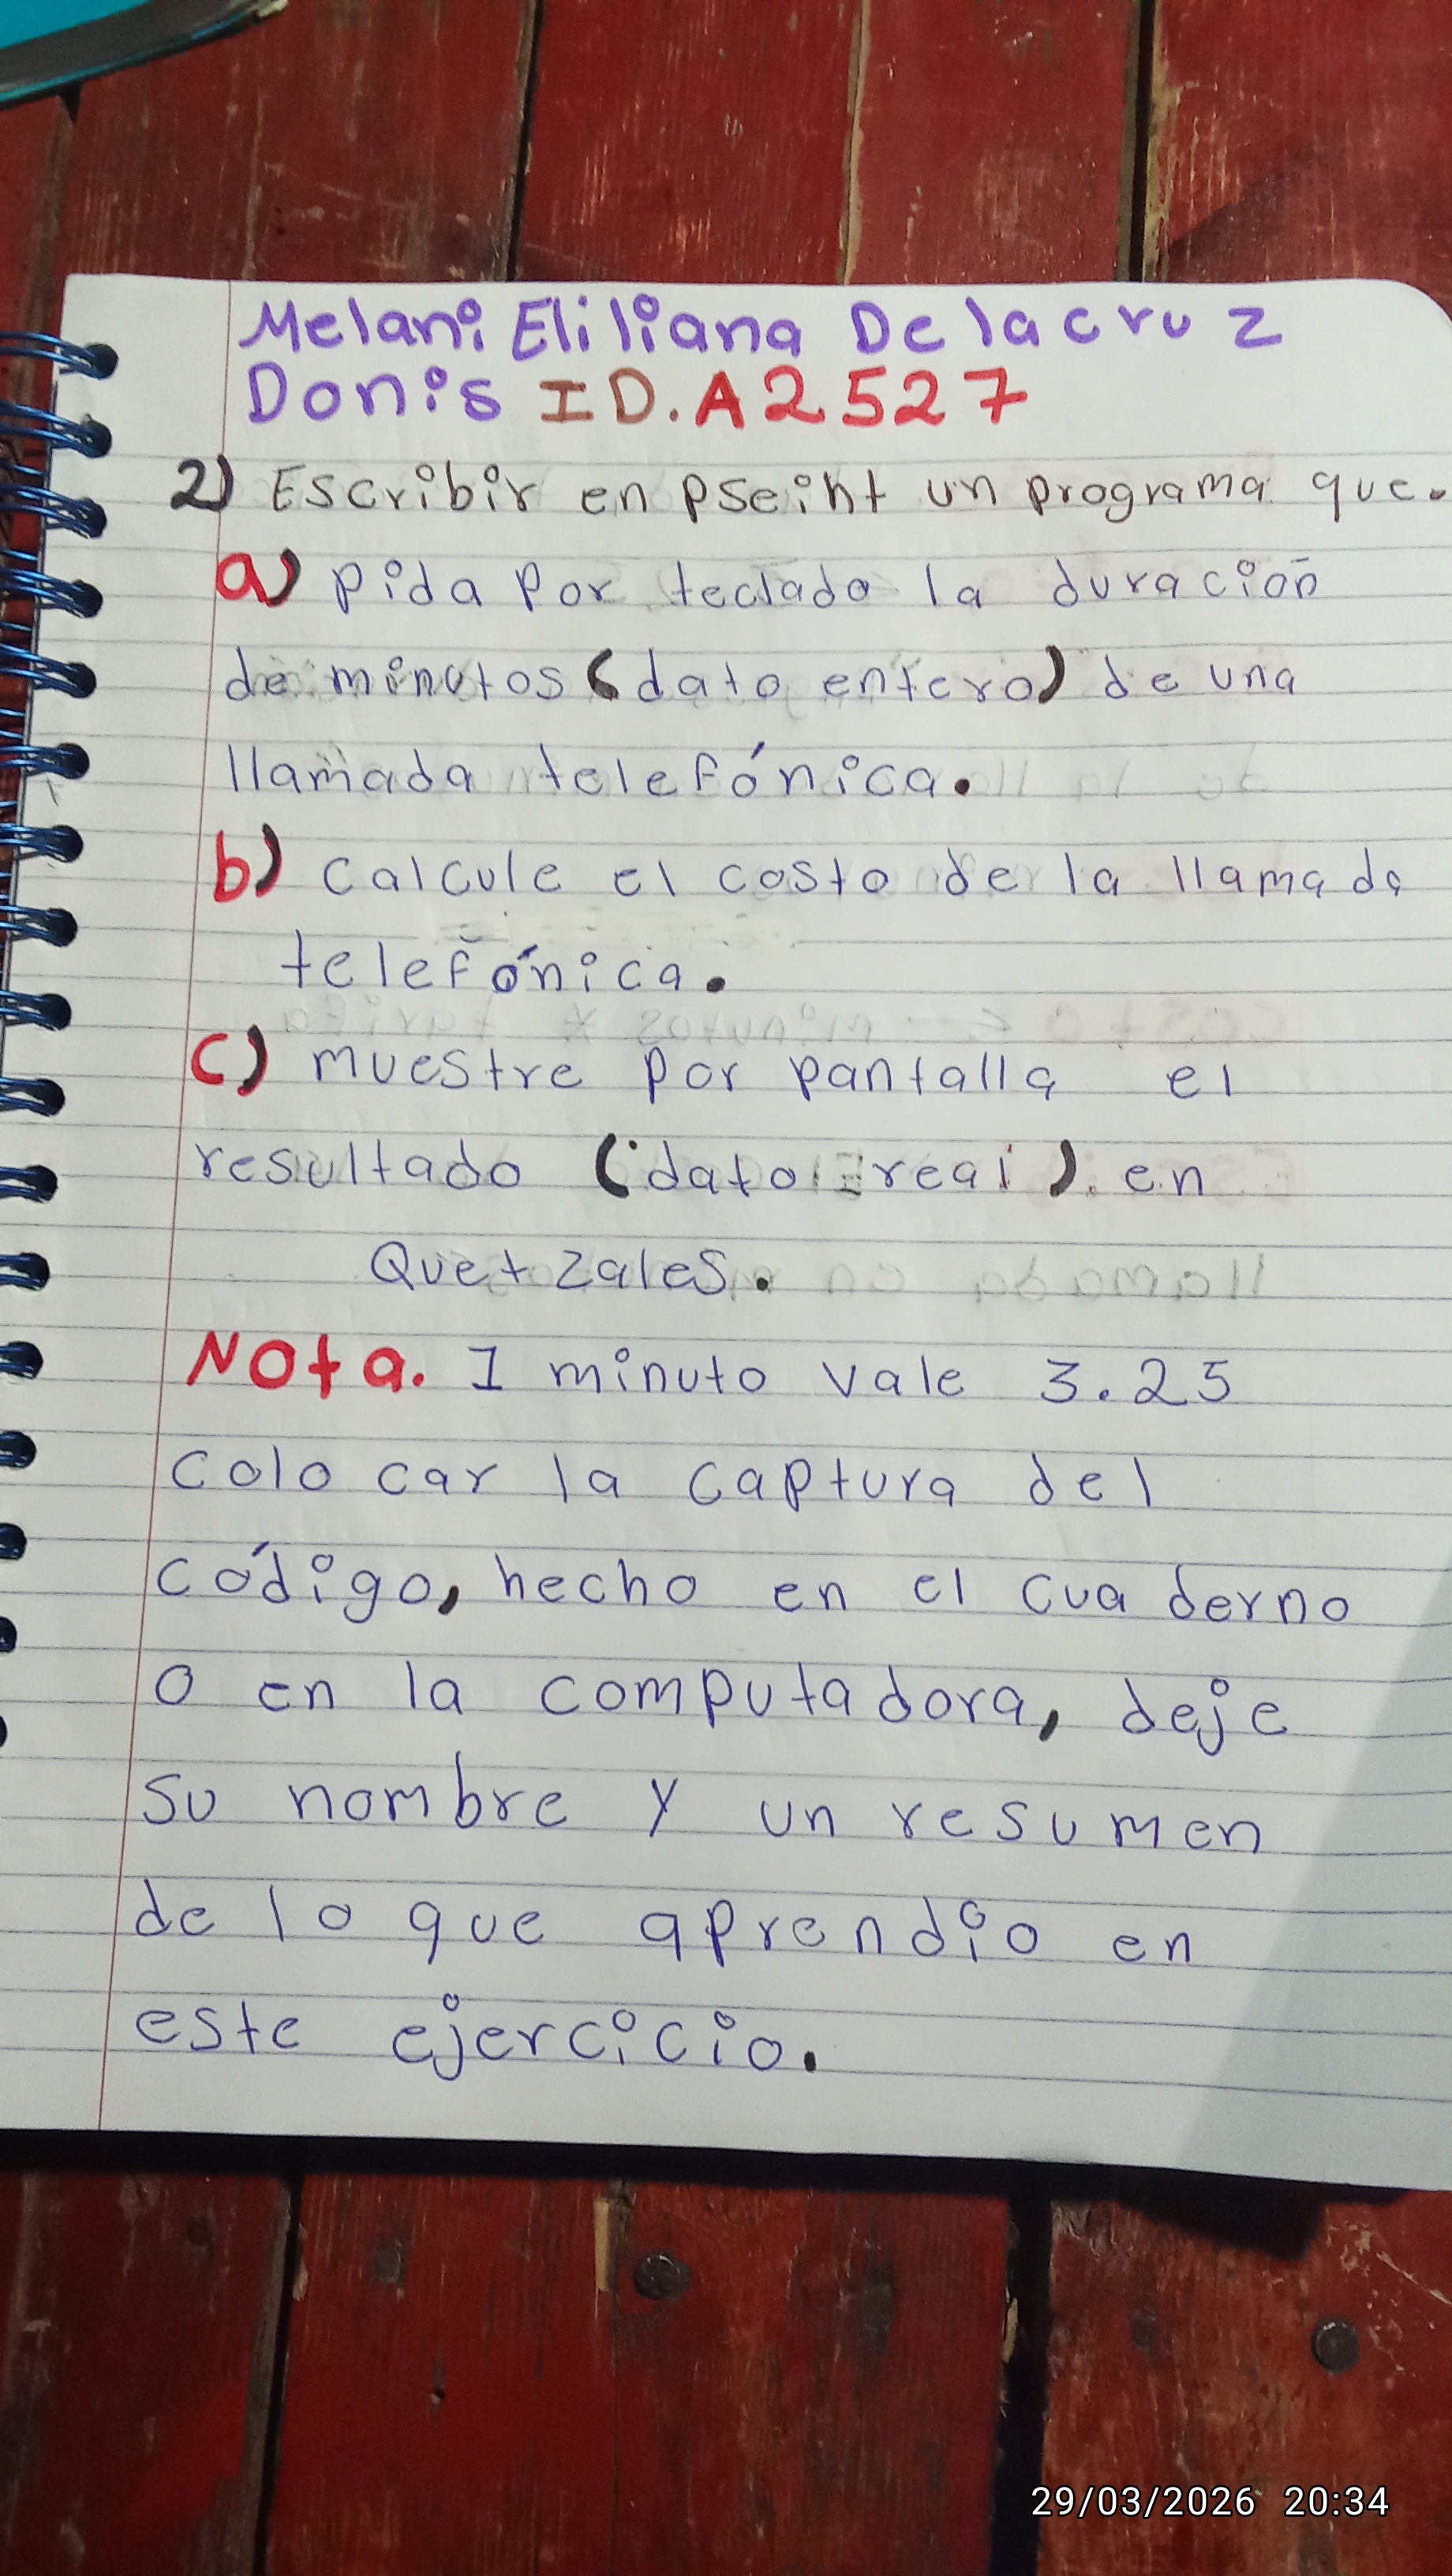 Melani Eliliana Delacruz
Donis ID. A2527
2) Escribir en Pseint un programa que.
a) Pida Por teclado la duración
de minutos (dato entero) de una
llamada telefónica.
b) Calcule el costo de la llamada
telefónica.
c) muestre por pantalla el
resultado (dato real) en
Quetzales.
Nota. 1 minuto vale 3.25
Colocar la captura del
código, hecho en el cuaderno
o en la computadora, deje
su nombre y un resumen
de lo que aprendio en
este ejercicio.
29/03/2026 20:34